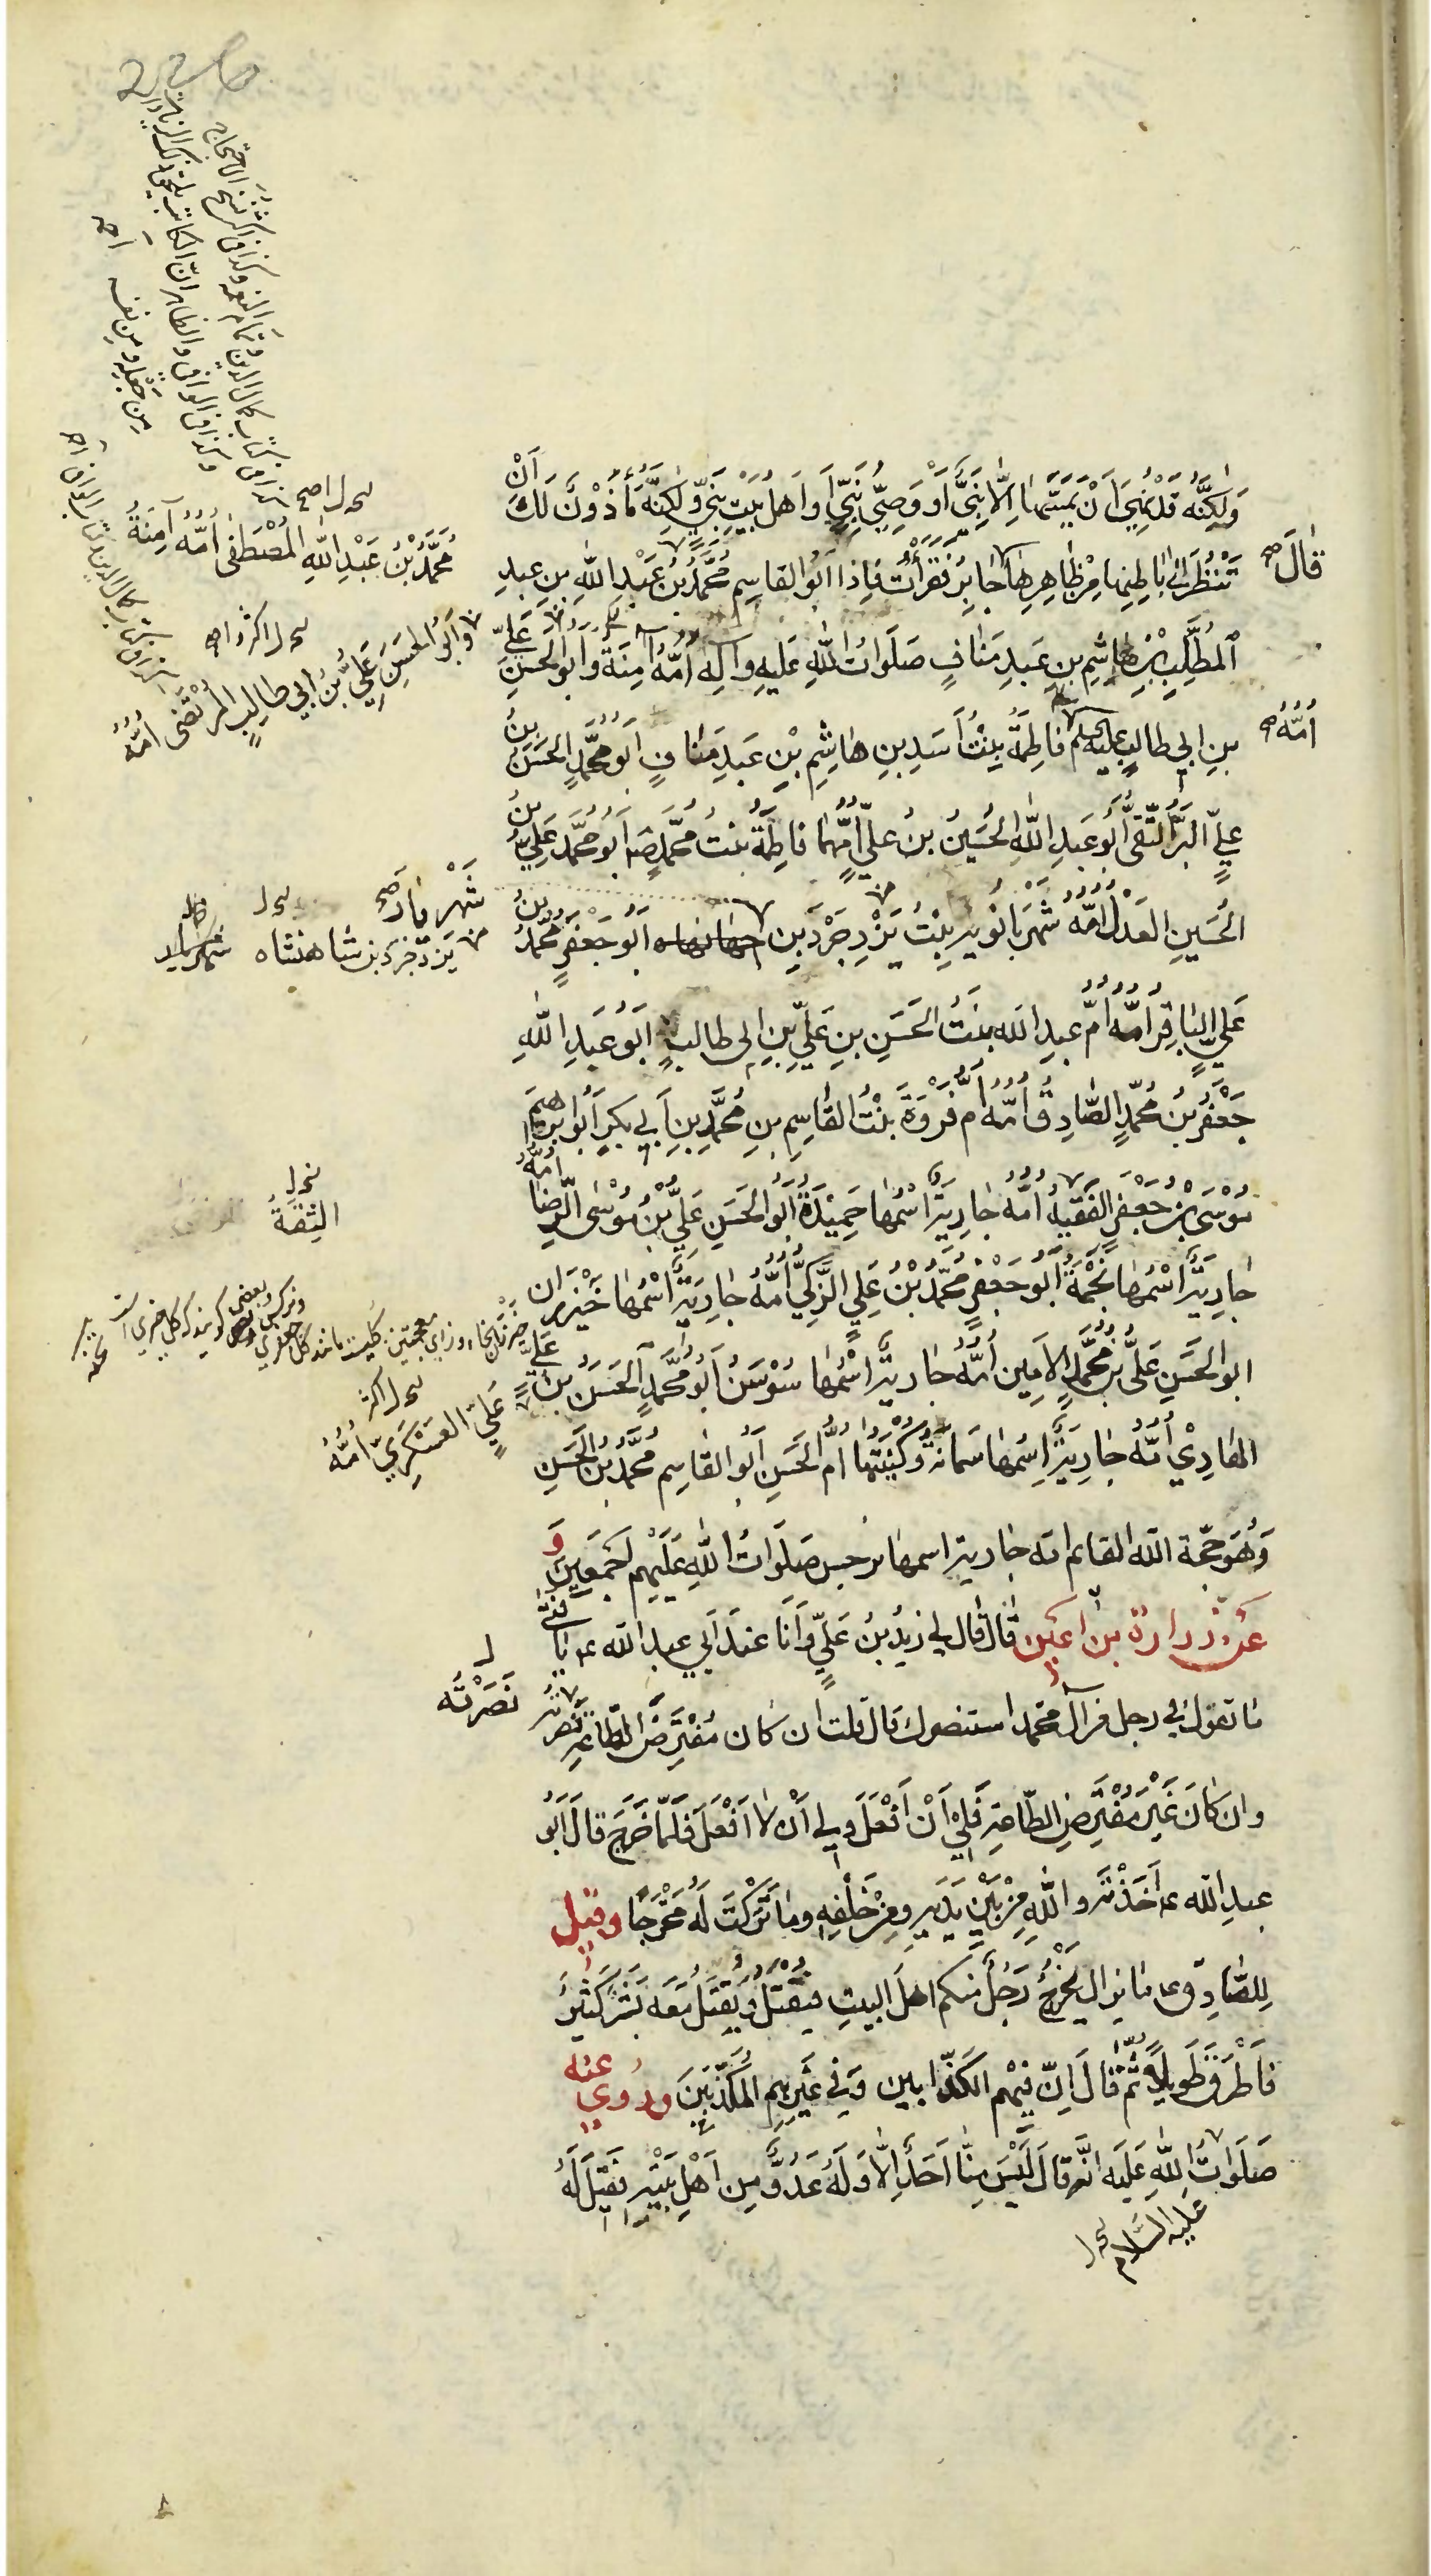 وَلٰكِنَّهُ قَدْ نُهِيَ اَنْ يَمَسَّهٰا اِلّٰا نَبِيٌّ اَوْ وَصِيُّ نَبِيٍّ اَو اَهلُ بَيْتِ نَبِيٍّ وَلٰكِنَّهُ مَأْذُوْنٌ لَكَ اَنْ
تَنْظُرَ اِلٰى بٰاطِنِهٰا مِنْ ظٰاهِرِهٰا قٰالَ جٰابِرٌ فَقَرَأْتُ فَاِذٰا اَبُو القٰاسِمِ مُحَمَّدُ بْنُ عَبْدِ اللّٰهِ بنِ عبدِ
المُطَّلِبِ بْنِ هٰاشِمِ بنِ عَبدِ مَنٰافٍ صَلَوٰاتُ اللّٰهِ عَلَيهِ وآلِهِ اُمُّهُ آمِنَةُ وَاَبُو الحَسَنِ عَلِيّ
بنِ ابي طالبٍ عليه السلم اُمُّهُ فٰاطِمَةُ بِنْتُ اَسَدِ بنِ هٰاشِمِ بْنِ عَبدِ مَنٰافٍ اَبُو مُحَمَّدٍ الحَسَنُ بنُ
عليٍّ البَرُّ التَّقِيُّ اَبُو عَبدِ اللّٰهِ الحُسَيْنُ بنُ عليٍّ اُمُّهُمٰا فٰاطِمَةُ بنتُ محمّدٍ ص اَبُو مُحَمَّد عَلِيُّ بنُ
الحُسَينِ العَدْلُ اُمُّهُ شَهْرَبٰانُويه بِنْتُ يَزْدِجَرْدَ بنِ اَبُو جَعْفَرٍ مُحَمَّدُ بنُ
عَلِيٍّ البٰاقِرُ اُمُّهُ اُمُّ عبدِ اللّه بنتُ الحَسَنِ بنِ عَلِيِّ بنِ ابى طالبٍ اَبُو عَبدِ اللّٰهِ
جَعْفَرُ بنُ مُحَمّدٍ الصّٰادِقُ اُمُّهُ اُمُّ فَرْوَةَ بنْتُ القٰاسِمِ بنِ مُحَمَّدِ بنِ اَبي بَكرٍ اَبُو ابرٰهيمَ
مُوسَى بْنُ جَعْفَرٍ الفَقيهُ اُمُّهُ جٰارِيَةٌ اسْمُهٰا حَمِيْدَةُ اَبُو الحَسَنِ عَلِيُّ بْنُ مُوْسَى الرِّضٰا اُمُّهُ
جٰارِيَةٌ اسْمُهٰا نَجْمَةُ اَبُو جَعْفَرٍ مُحَمَّدُ بْنُ عَلِيٍّ الزَّكِيُّ اُمُّهُ جٰارِيَةٌ اسْمُهٰا خَيْزران
ابو الحَسَنِ عَلِيُّ بنُ مُحَمَّدٍ الاَمِين اُمُّهُ جٰارِيَةٌ اسْمُهٰا سُوْسَنُ اَبُو مُحَمَّدٍ الحَسَنُ بنُ عَلِيٍّ
الهٰادِيْ اُمُّهُ جٰارِيَةٌ اِسْمُهٰا سَمٰانَةُ وَكُنْيَتُهٰا اُمُّ الحَسَنِ اَبُو القٰاسِمِ مُحَمَّدُ بنُ الحَسَنِ
وَهُوَ حجّة اللّه القائم امّه جارية اسمهٰا نرجس صَلَوٰاتُ اللّٰهِ عَلَيْهِم اَجْمَعِيْنَ وَ
عَن زرارة بن اَعْيَن قٰال قٰال لي زيْدُ بنُ عَلِيٍّ وَاَنَا عندَ اَبي عبد اللّه ع يٰا فَتىٰ
مٰا تقولُ في رجل من آل محمّد استنصرك قال قلت ان كان مُفْتَرَضَ الطّاعةِ نَصَرتُهُ
وان كانَ غَيْرَ مُفْتَرَضِ الطّاعةِ فَلِيْ اَنْ اَفْعَلَ وَلي اَن لٰا اَفْعَلَ فَلَمّٰا خَرَجَ قالَ اَبُو
عبدِ اللّه ع اَخَذْتَهُ وَاللّٰهِ مِنْ بَيْنِ يَدَيْهِ ومِنْ خَلْفِهِ ومٰا تَرَكْتَ لَهُ مَخْرَجًا وقيل
لِلصّٰادِقِ ع مٰا يزالُ يَخْرُجُ رَجُلٌ مِنكم اهلَ البيتِ فيُقْتَلُ ويُقْتَلُ مَعَهُ بَشَرٌ كَثيرٌ
فَاَطْرَقَ طَويلًا ثُمَّ قٰالَ اِنّ فِيْهِم الكَذّٰابين وَفي غَيْرِهِم المُكَذِّبيْنَ ورُوي عنه
صَلَوٰاتُ اللّٰهِ عَلَيه انّه قٰالَ لَيْسَ مِنّٰا اَحَدٌ اِلّٰا وَلَهُ عَدُوٌّ مِن اَهْلِ بَيْتِهِ فَقِيْلَ لَهُ
عليه السّلام
قٰالَ صح
اُمُّهُ صح
مُحَمَّدُ بْنُ عَبْدِ اللّٰهِ المُصْطَفٰى اُمُّهُ آمِنَةُ
وَاَبُو الحَسَنِ عَلِيُّ بْنُ اَبِي طٰالِبٍ المُرْتَضٰى اُمُّهُ
شَهْرِيٰارَ صح
يَزْدَجَرْدَ بنِ شٰاهنشاه
الثِّقَةُ
عَلِيٍّ العَسْكَرِيّ اُمُّهُ
نَصَرْتُه
من خطه ومن نفسه